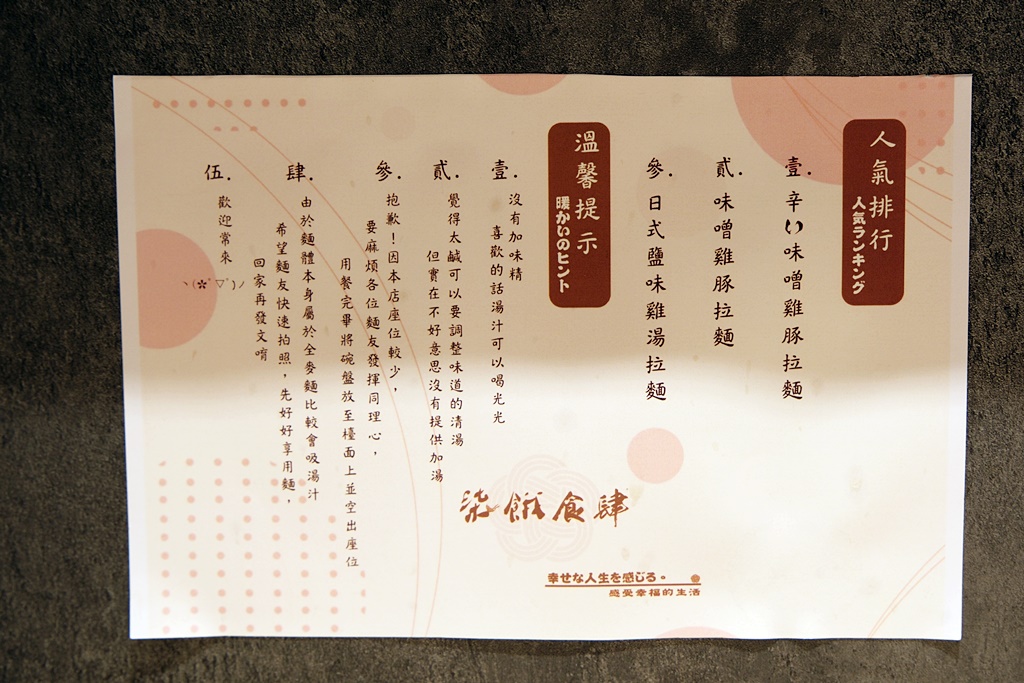 人氣排行
人気ランキング
壹.辛い味噌雞豚拉麵
貳.味噌雞豚拉麵
參.日式鹽味雞湯拉麵
溫馨提示
暖かいのヒント
壹.沒有加味精
喜歡的話湯汁可以喝光光
貳.覺得太鹹可以要調整味道的清湯
但實在不好意思沒有提供加湯
參.抱歉！因本店座位較少，
要麻煩各位麵友發揮同理心，
用餐完畢將碗盤放至檯面上並空出座位
肆.由於麵體本身屬於全麥麵比較會吸湯汁
希望麵友快速拍照，先好好享用麵，
回家再發文唷
伍.歡迎常來
ヽ(✿ﾟ▽ﾟ)ノ
柒餓食肆
幸せな人生を感じる。
感受幸福的生活